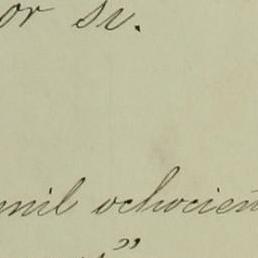 or si.
mil ochocien
"